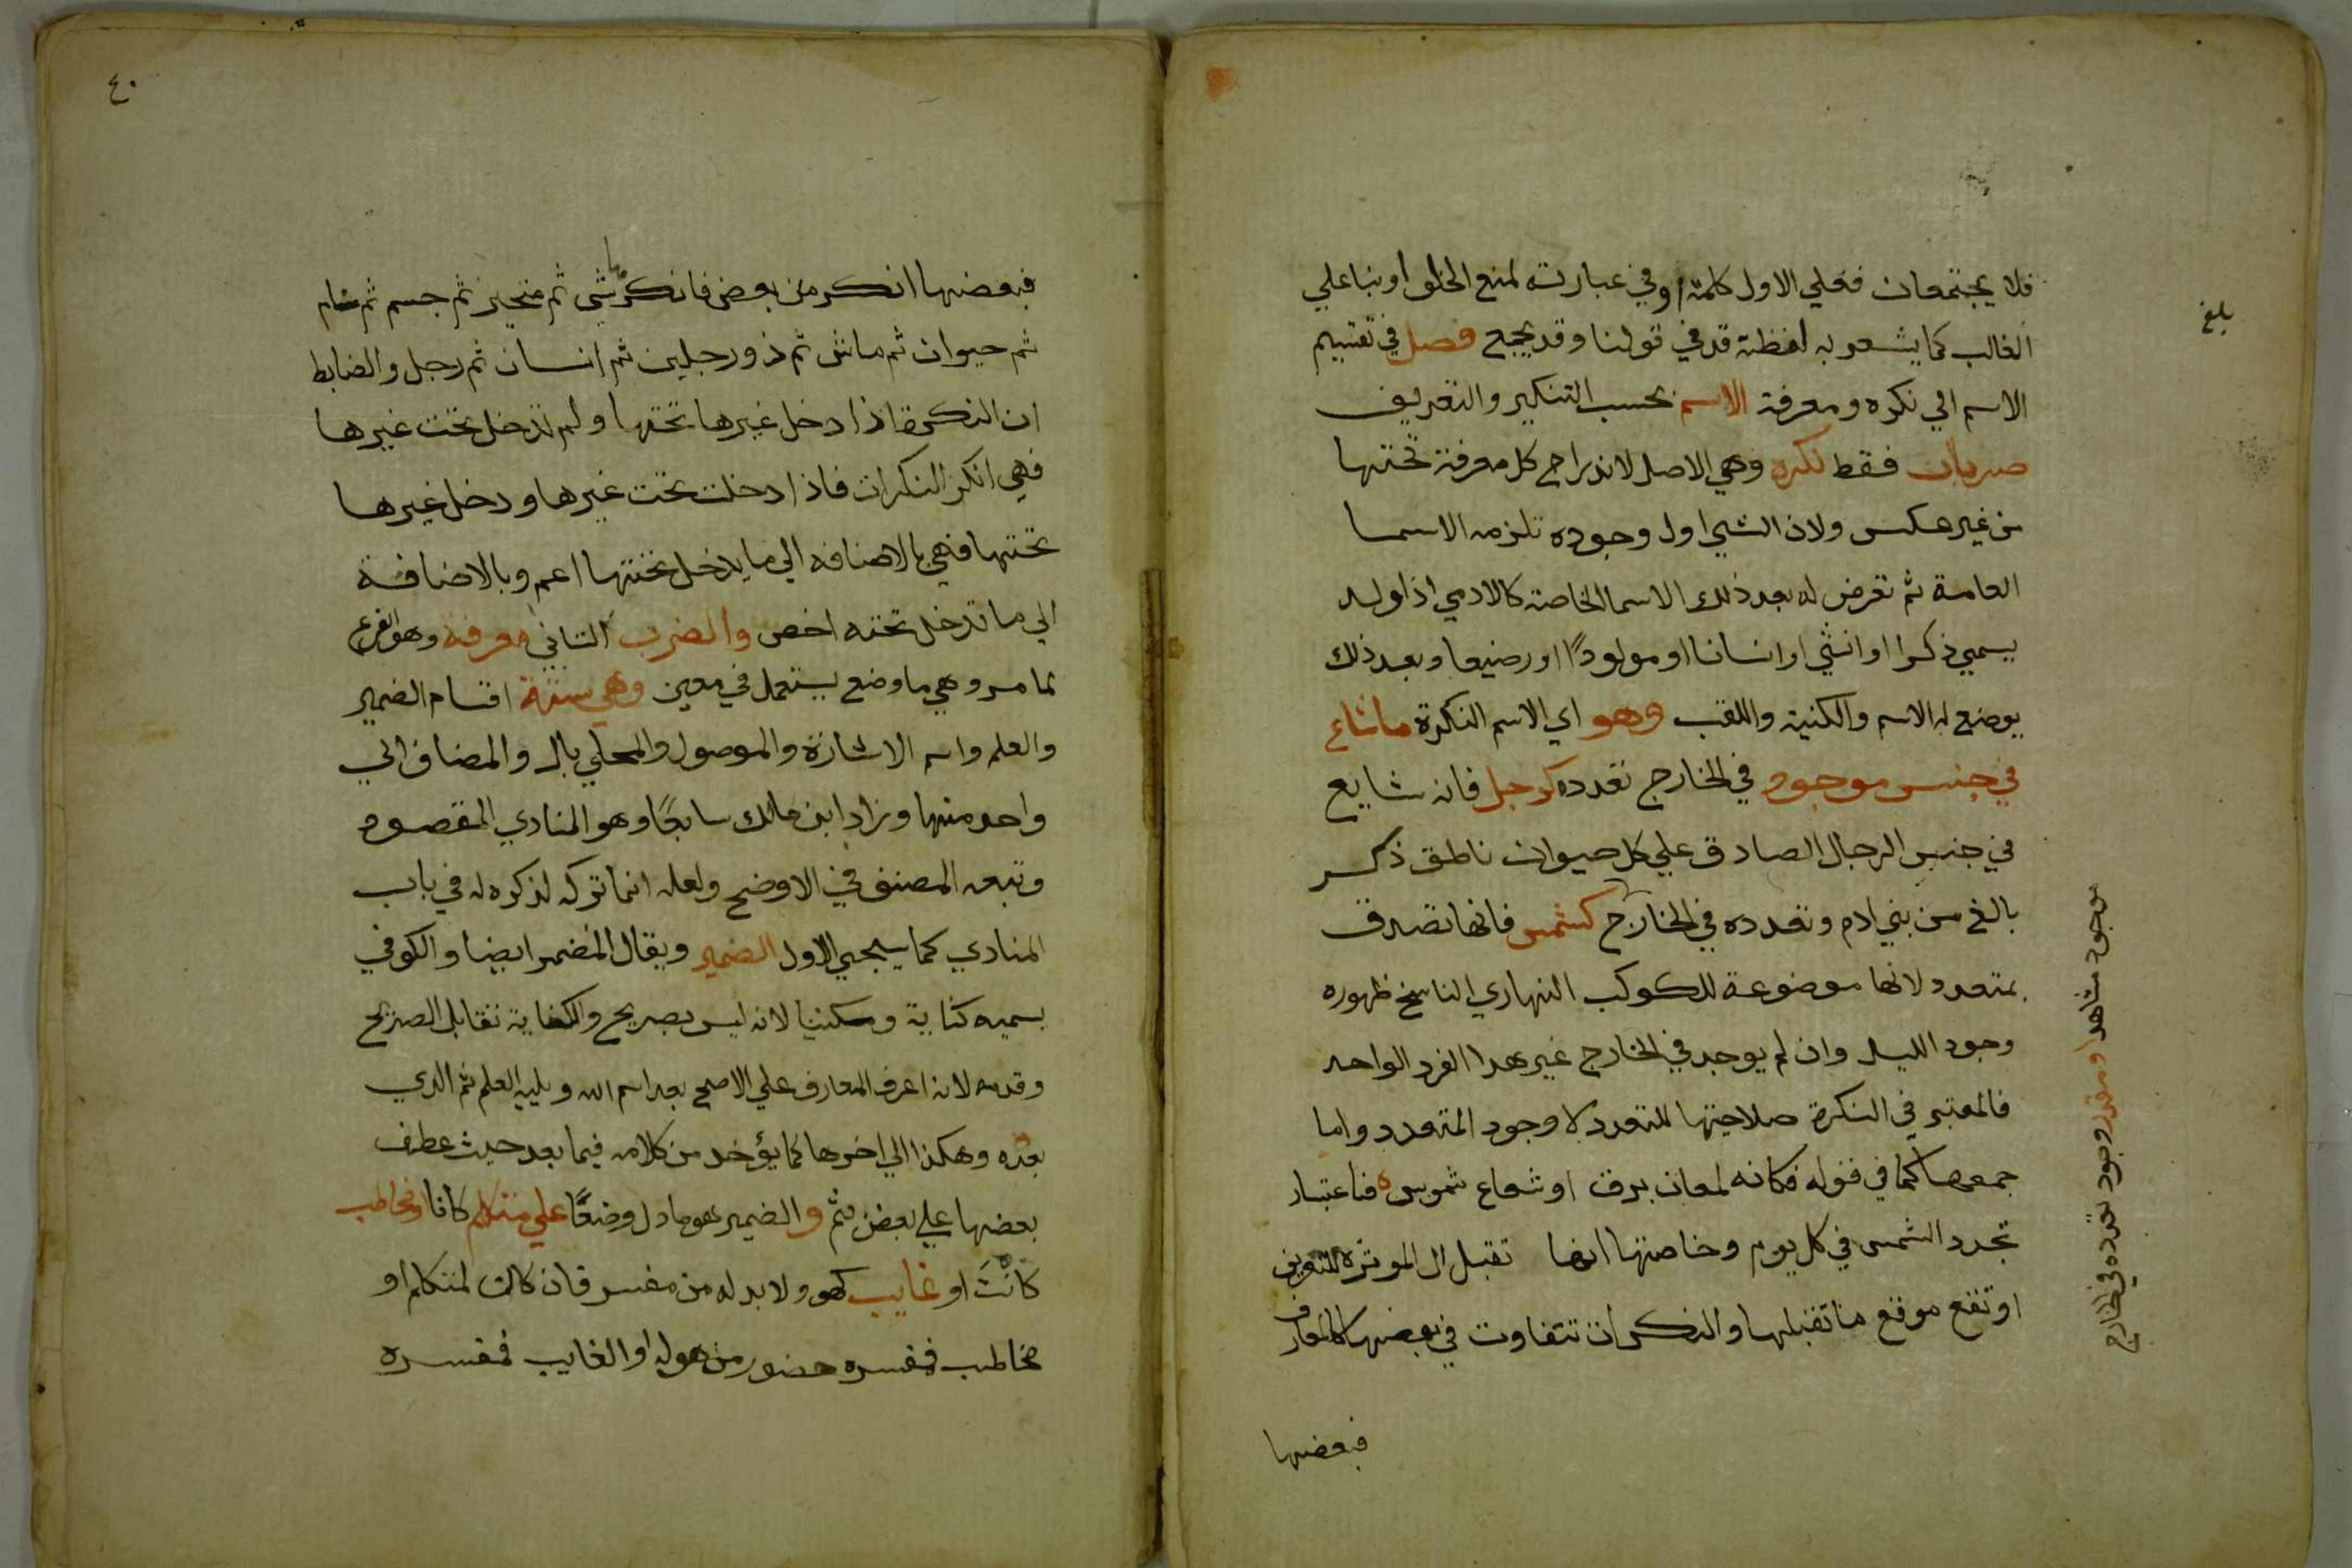 بلغ
فلا يجتمعان فعلي الاول كلمة او في عبارته لمنع الخلو او بنا علي
الغالب كما يشعر به لفظة قد في قولنا وقد يجمع فصل في تقسيم
الاسم الي نكره ومعرفة الاسم بحسب التنكير والتعريف
ضربان فقط نكره وهي الاصل لاندراج كل معرفة تحتها
من غير عكس ولان الشي اول وجوده تلزمه الاسما
العامة ثم تعرض له بعد ذلك الاسما الخاصة كالادمي اذا ولد
يسمي ذكرا او انثي او انسانا او مولودًا او رضيعا وبعد ذلك
يوضع له الاسم والكنية واللقب وهو اي الاسم النكرة ما شاع
في جنس موجود في الخارج تعدده كرجل فانه شايع
في جنس الرجال الصادق علي كل حيوان ناطق ذكر
بالغ من بني ادم وتعدده في الخارج كشمس فانها تصدق
بمتعدد لانها موضوعة للكوكب النهاري الناسخ ظهوره
وجود الليل وان لم يوجد في الخارج غير هدا الفرد الواحد
فالمعتبر في النكرة صلاحيتها للتعدد لا وجود المتعدد واما
جمعها كما في قوله فكانه لمعان برق او شعاع شموس فباعتبار
تجدد الشمس في كل يوم وخاصتها انها تقبل ال الموثرة للتعريف
او تقع موقع ما تقبلها والنكرات تتفاوت في بعضها كالمعارف
فبعضها
موجود مشاهد او مقدر وجود تعدده في الخارج
٤٠
فبعضها انكر من بعض فانكرها شي ثم متحيز ثم جسم ثم نام
ثم حيوان ثم ماش ثم ذو رجلين ثم انسان ثم رجل والضابط
ان النكرة اذا دخل غيرها تحتها ولم تدخل تحت غيرها
فهي انكر النكرات فاذا دخلت تحت غيرها ودخل غيرها
تحتها فهي بالاضافه الي ما يدخل تحتها اعم وبالاضافة
الي ما تدخل تحته اخص والضرب الثاني معرفة وهو الفرع
لما مر وهي ما وضع يستعمل في معين وهي ستة اقسام الضمير
والعلم واسم الاشارة والموصول والمحلي بال والمضاف الي
واحد منها وزاد ابن مالك سابعًا وهو المنادي المقصود
وتبعه المصنف في الاوضح ولعله انما تركه لذكره له في باب
المنادي كما سيجي الاول الضمير ويقال المضمر ايضا والكوفي
يسميه كناية ومكنيا لانه ليس بصريح والكناية تقابل الصريح
وقدمه لانه اعرف المعارف علي الاصح بعد اسم الله ويليه العلم ثم الدي
بعده وهكذا الي اخرها كما يؤخد من كلامه فيما بعد حيث عطف
بعضها علي بعض بثم والضمير هو ما دل وضعًا علي متكلم كانا او مخاطب
كانتَ او غايب كهو ولا بد له من مفسر فان كان لمتكلم او
مخاطب فمفسره حضور من هو له او الغايب فمفسره